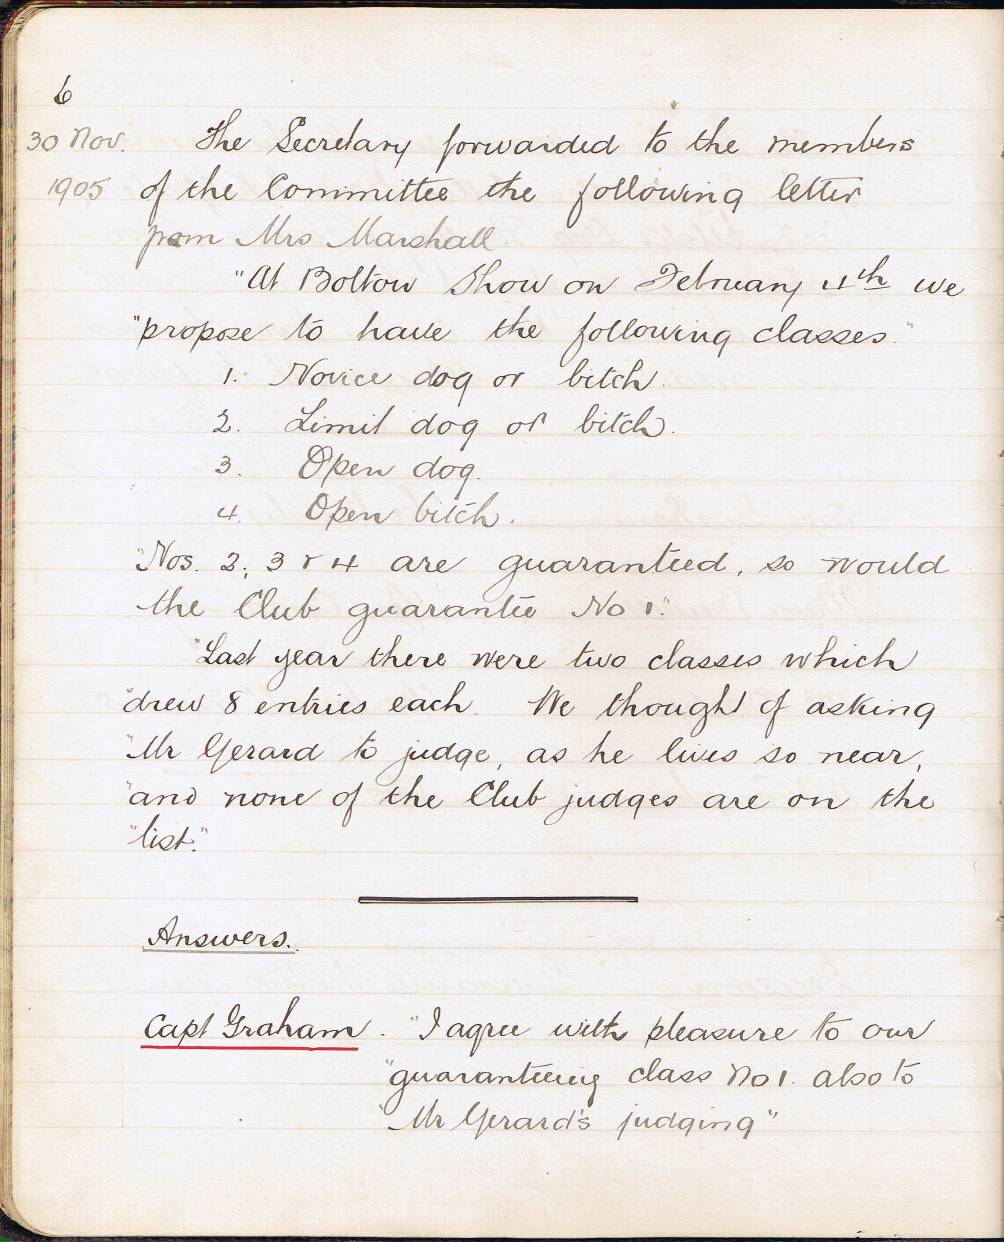 6
30 Nov. The Secretary forwarded to the members
1905 of the Committee the following letter
from Mrs Marshall.
"At Bolton Show on February 4th we
"propose to have the following classes."
1. Novice dog or bitch.
2. Limit dog or bitch.
3. Open dog.
4. Open bitch.
"Nos. 2, 3 & 4 are guaranteed, so would
the Club guarantee No 1."
"Last year there were two classes which
"drew 8 entries each. We thought of asking
"Mr Gerard to judge, as he lives so near,
"and none of the Club judges are on the
"list."
Answers.
Capt Graham. "I agree with pleasure to our
"guaranteeing class No 1. also to
"Mr Gerard's judging"